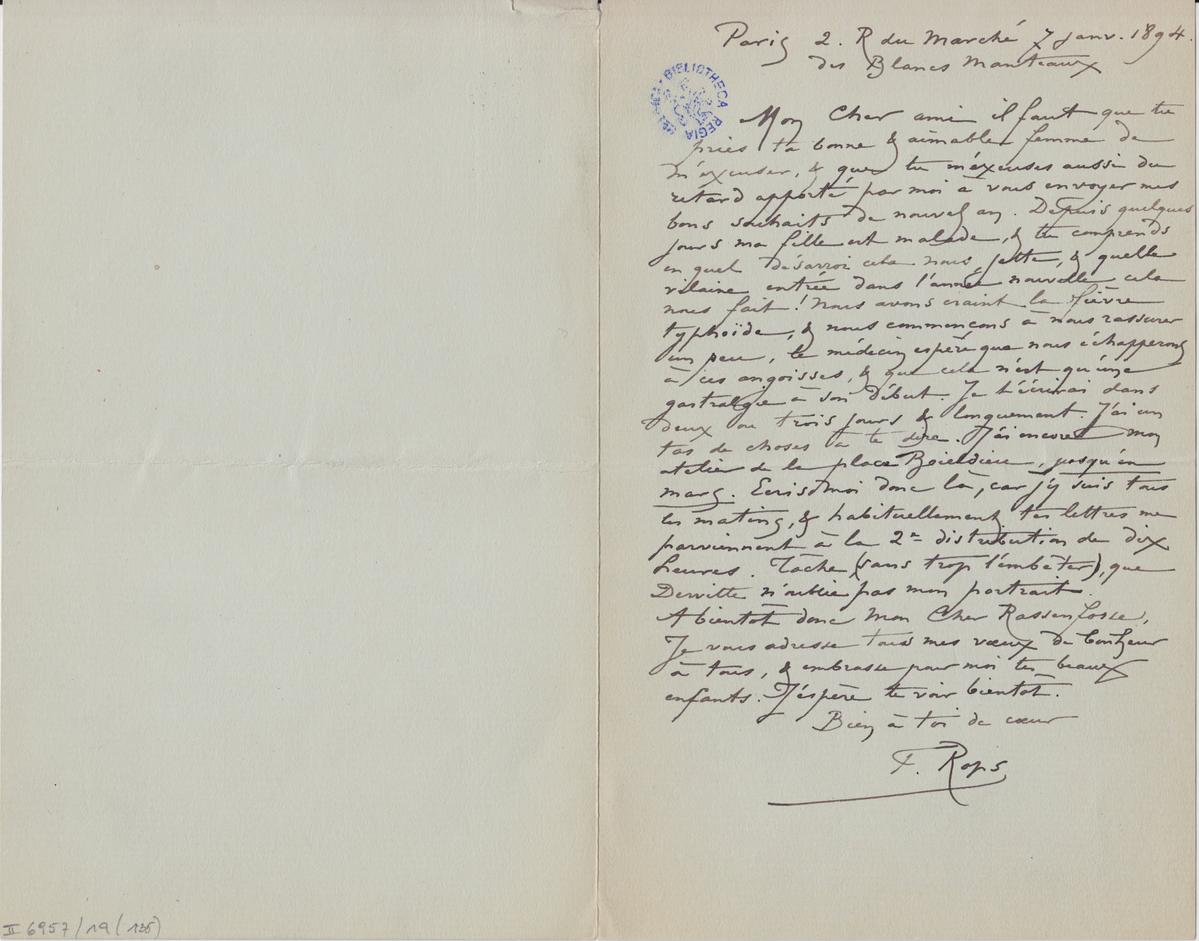 Paris 2. R du Marché 7 janv. 1894.
des Blancs Manteaux
BIBLIOTHECA REGIA
Mon Cher ami il faut que tu
pries ta bonne & aimable femme de
m'éxcuser, & que tu m'éxcuses aussi du
retard apporté par moi à vous envoyer mes
bons souhaits de nouvel an. Depuis quelques
jours ma fille est malade, & tu comprends
en quel désarroi cela nous jette, & quelle
vilaine entrée dans l'année nouvelle cela
nous fait ! Nous avons craint la fièvre
typhoïde, & nous commençons à nous rassurer
un peu, le médecin espère que nous échapperons
à ces angoisses, & que cela n'est qu'une
gastralgie à son début. Je t'écrirai dans
deux ou trois jours & longuement. J'ai un
tas de choses à te dire. J'ai encore mon
atelier de la place Boieldieu, jusqu'en
mars. Ecris moi donc là, car j'y suis tous
les matins, & habituellement tes lettres me
parviennent à la 2e distribution de dix
heures. Tâche (sans trop l'embêter), que
Dewitte n'oublie pas mon portrait.
A bientôt donc mon Cher Rassenfosse,
Je vous adresse tous mes vœux de bonheur
à tous, & embrasse pour moi tes beaux
enfants. J'éspère te voir bientôt.
Bien à toi de cœur
F. Rops
II 6957/19 (135)